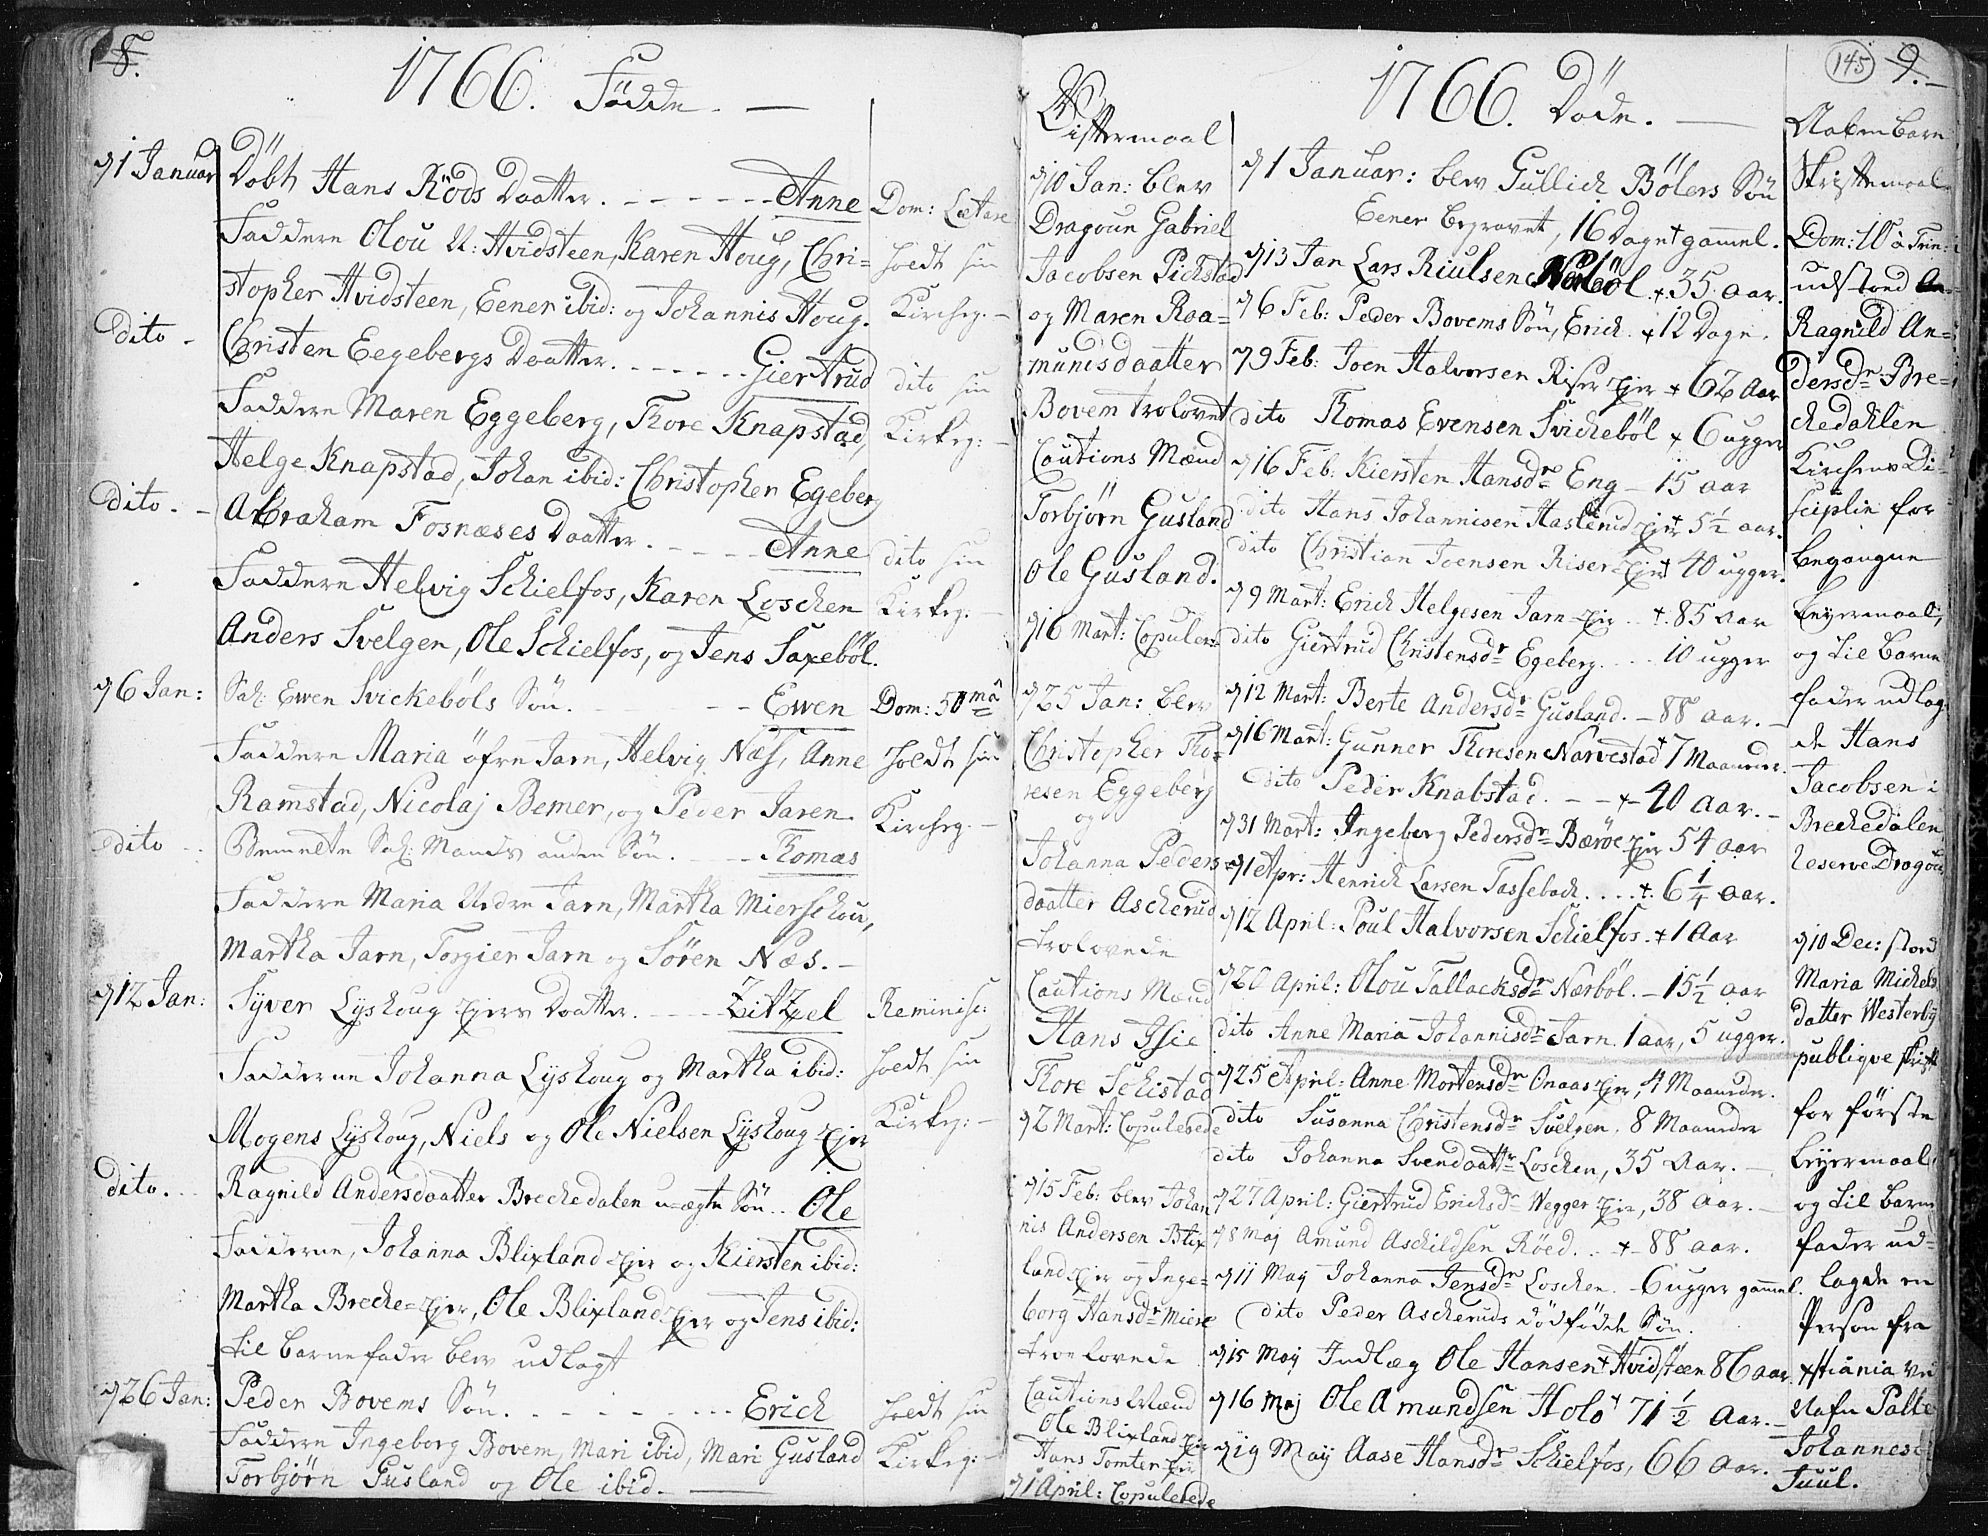 8.
1766. Födde.
d 1 Januar
Döbt Hans Röds Daatter. - - - Anne
Faddere Olou N: Hvidsteen, Karen Houg, Chri=
stopher Hvidsteen, Eener ibid: og Johannis Houg.
dito -
Christen Eegebergs Daatter. - - - Giertrud
Faddere Maren Eggeberg, Thore Knapstad,
Helge Knapstad, Johan ibid: Christopher Egeberg
dito. -
Abraham Fosnæses Daatter. - - - Anne
Faddere Helvig Schielfos, Karen Loschen
Anders Svelgen, Ole Schielfos, og Jens Saxeböl.
d 6 Jan:
Sal: Ewen Svickeböls Sön. - - - Ewen
Faddere Maria öfre Jarn, Helvig Næs, Anne
Ramstad, Nicolaj Bemer, og Peder Jaren
dito -
Bemelte Sal: Mands anden Sön. - - - Thomas
Faddere Maria Nedre Jarn, Martha Mierschou,
Martha Jarn, Torgier Jarn og Sören Næs. -
d 12 Jan:
Syver Lyshoug Ejers Daatter. - - - Zitzel
Fadderne Johanna Lyshoug og Martha ibid:
Mogens Lyshoug, Niels og Ole Nielsen Lyshoug Ejer
dito. -
Ragnild Andersdaatter Breckedalen u-ægte Sön . . Ole
Fadderne, Johanna Blixland Ejer og Kiersten ibid:
Martha Brecke=Ejer, Ole Blixland Ejer og Jens ibid:
til Barnefader blev udlagt
d 26 Jan:
Peder Bovems Sön. - - - Erich
Faddere Ingeborg Bovem, Mari ibid, Mari Gusland
Torbjörn Gusland og Ole ibid. -
Dom: Lætare
holdt sin
Kircheg. -
dito sin
Kirkeg: -
dito sin
Kirkeg: -
Dom: 50mâ
holdt sin
Kircheg. -
Reminisc:
holdt sin
Kirkeg: -
holdt sin
Kirkeg: -
Giftermaal
d 10 Jan: blev
Dragoun Gabriel
Jacobsen Pichstad
og Maren Roa=
mundsdaatter
Bovem trolovet
Cautions Mænd
Torbjörn Gusland
Ole Gusland.
d 16 Mart: Copulered
d 25 Jan: blev
Christopher Tho=
resen Eggeberg
og
Johanna Peders=
daatter Ascherud
trolovede
Cautions Mænd
Hans Hsie
Thore Schistad
d 2 Mart: Copulerede
d 15 Feb: blev Johan
nis Andersen Blix
land Ejer og Inge=
borg Hansdr Miere
troelovede
Cautions Mænd
Ole Blixland Ejer
Hans Tomter Ejer
d 1 April: Copulerede
1766. Döde.
d 1 Januar: blev Gullich Bölers Sön
Eener begravet, 16 Dage gammel.
d 13 Jan Lars Riulsen Nerböl + 35 aar.
d 6 Feb: Peder Bovems Sön, Erich + 12 Dage.
d 9 Feb: Joen Halvorsen Riser Ejer + 62 Aar
dito Thomas Evensen Svickeböl + 6 ugger
d 16 Feb: Kiersten Hansdr Eng - 15 aar
dito Hans Johannisen Haslerud Ejer + 5½ aar.
dito Christian Joensen Riser Ejer + 40 ugger.
d 9 Mart: Erich Helgesen Jarn Ejer + 85 aar
dito Giertrud Christensdr Egeberg. . . . 10 ugger
d 12 Mart: Berte Andersdr Gusland. - 88 aar.
d 16 Mart: Gunner Thoresen Narvestad + 7 Maaneder.
dito Peder Knabstad. - - + 40 aar. -
d 31 Mart: Ingeborg Pedersdr Bæröe Ejer 54 aar
d 1 Apr: Henrich Larsen Tassebach . . . + 6¼ aar.
d 12 April: Poul Halvorsen Schielfos. + 1 Aar
d 20 April: Olou Tallacksdr Nærböl. - 15½ aar
dito Anne Maria Johannisdr Jarn. 1 aar, 5 ugger.
d 25 April: Anne Mortensdr Onaas Ejer, 4 Maaneder.
dito Susanna Christensdr Svelgen. 8 Maaneder
dito Johanna Svendaattr Loschen, 35 Aar. -
d 27 April: Giertrud Erichsdr Wegger Ejer, 38 aar. -
d 8 Maj Amund Aschildsen Röed. . . + 88 aar.
d 11 May Johanna Jensdr Loschen. - 6 ugger gammel.
dito Peder Ascheruds dödfödde Sön.
d 15 May Indlæg Ole Hansen + Hvidsteen 86 aar
d 16 Maj Ole Amundsen Holo + 71½ Aar. -
d 19 May Aase Hansdr Schielfos, 66 Aar.
145
9. -
Aabenbare
Skriftemaal
Dom: 10 à Trin:
udstoed
Ragnild An=
dersdr Bre=
ckedahlen
Kirchens Di=
sciplin for
begangne
Leyermaal,
og til Barne
fader udlag
de Hans
Jacobsen i
Breckedalen
Reserve Dragon
d 10 Dec: stod
Maria Michels
datter Westerby
publiqve skrift
for förste
Leyermaal,
og til Barne
fader ud=
lagde en
Person fra
Xstiania ved
Nafn Palle
Johannes:
Juul.